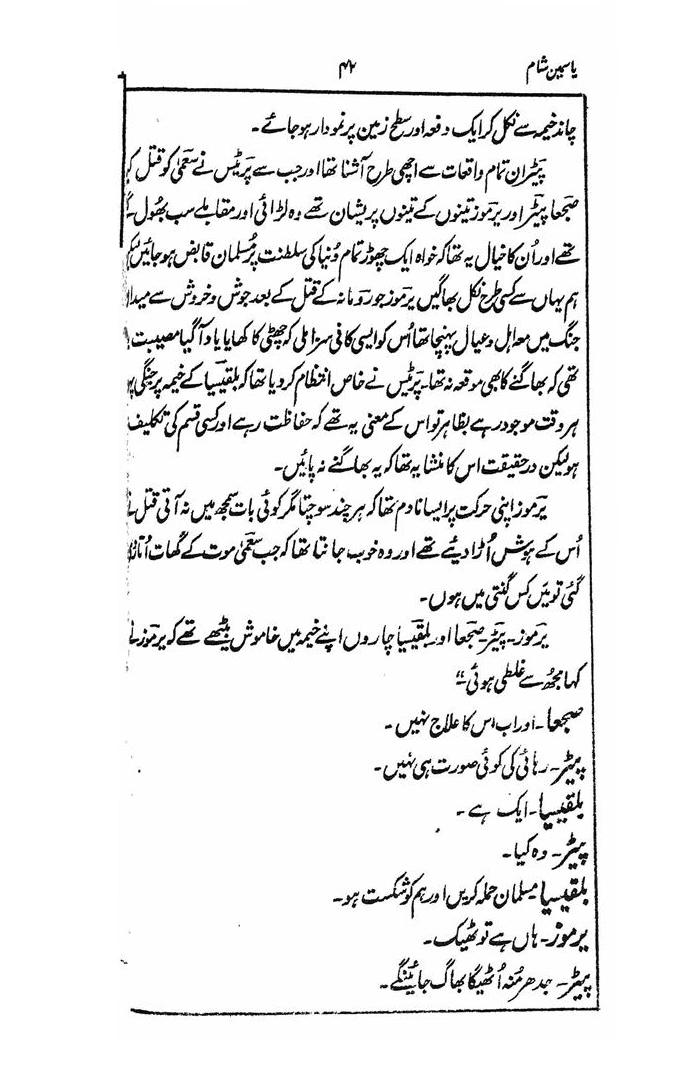 یاسمین شام ۴۲
چاند خیمہ سے نکل کر ایک دفعہ اور سطح زمین پر نمودار ہو جائے۔
پیٹر ان تمام واقعات سے اچھی طرح آشنا تھا اور جب سے پرٹیس نے سعمیٰ کو قتل
صبحعا پیٹر اور یرموز تینوں کے تینوں پریشان تھے وہ لڑائی اور مقابلے سب بھول
تھے اور اُن کا خیال یہ تھا کہ خواہ ایک چھوڑ تمام دُنیا کی سلطنت پر مُسلمان قابض ہو جائیں لیکن
ہم یہاں سے کسی طرح نکل بھاگیں یرموز جو رومانہ کے قتل کے بعد جوش و خروش سے میدا
جنگ میں معہ اہل و عیال پہنچا تھا اُس کو ایسی کافی سزا ملی کہ چھٹی کا کھایا یاد آ گیا مصیبت
تھی کہ بھاگنے کا بھی موقعہ نہ تھا۔ پرٹیس نے خاص انتظام کر دیا تھا کہ بلقیسیا کے خیمہ پر جنگی
ہر وقت موجود رہے بظاہر تو اس کے معنی یہ تھے کہ حفاظت رہے اور کسی قسم کی تکلیف
ہو لیکن در حقیقت اس کا منشا یہ تھا کہ یہ بھاگنے نہ پائیں۔
یرموز اپنی حرکت پر ایسا نادم تھا کہ ہر چند سوچتا مگر کوئی بات سمجھ میں نہ آتی قتل
اُس کے ہوش اُڑا دیئے تھے اور وہ خوب جانتا تھا کہ جب سعمیٰ موت کے گھاٹ
گئی تو میں کس گنتی میں ہوں۔
یرموز۔ پیٹر۔ صبحعا اور بلقیسیا چاروں اپنے خیمہ میں خاموش بیٹھے تھے کہ یرموز نے
کہا مجھ سے غلطی ہوئی"
صبحعا۔ اور اب اس کا علاج نہیں۔
پیٹر۔ رہائی کی کوئی صورت ہی نہیں۔
بلقیسیا۔ ایک ہے۔
پیٹر۔ وہ کیا۔
بلقیسیا۔ مسلمان حملہ کریں اور ہم کو شکست ہو۔
یرموز۔ ہاں ہے تو ٹھیک۔
پیٹر۔ جدھر مُنہ اُٹھیگا بھاگ جائینگے۔